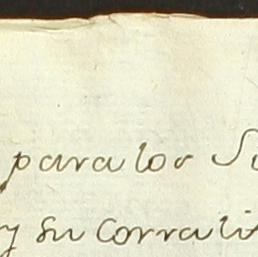 para los
y su Corrali